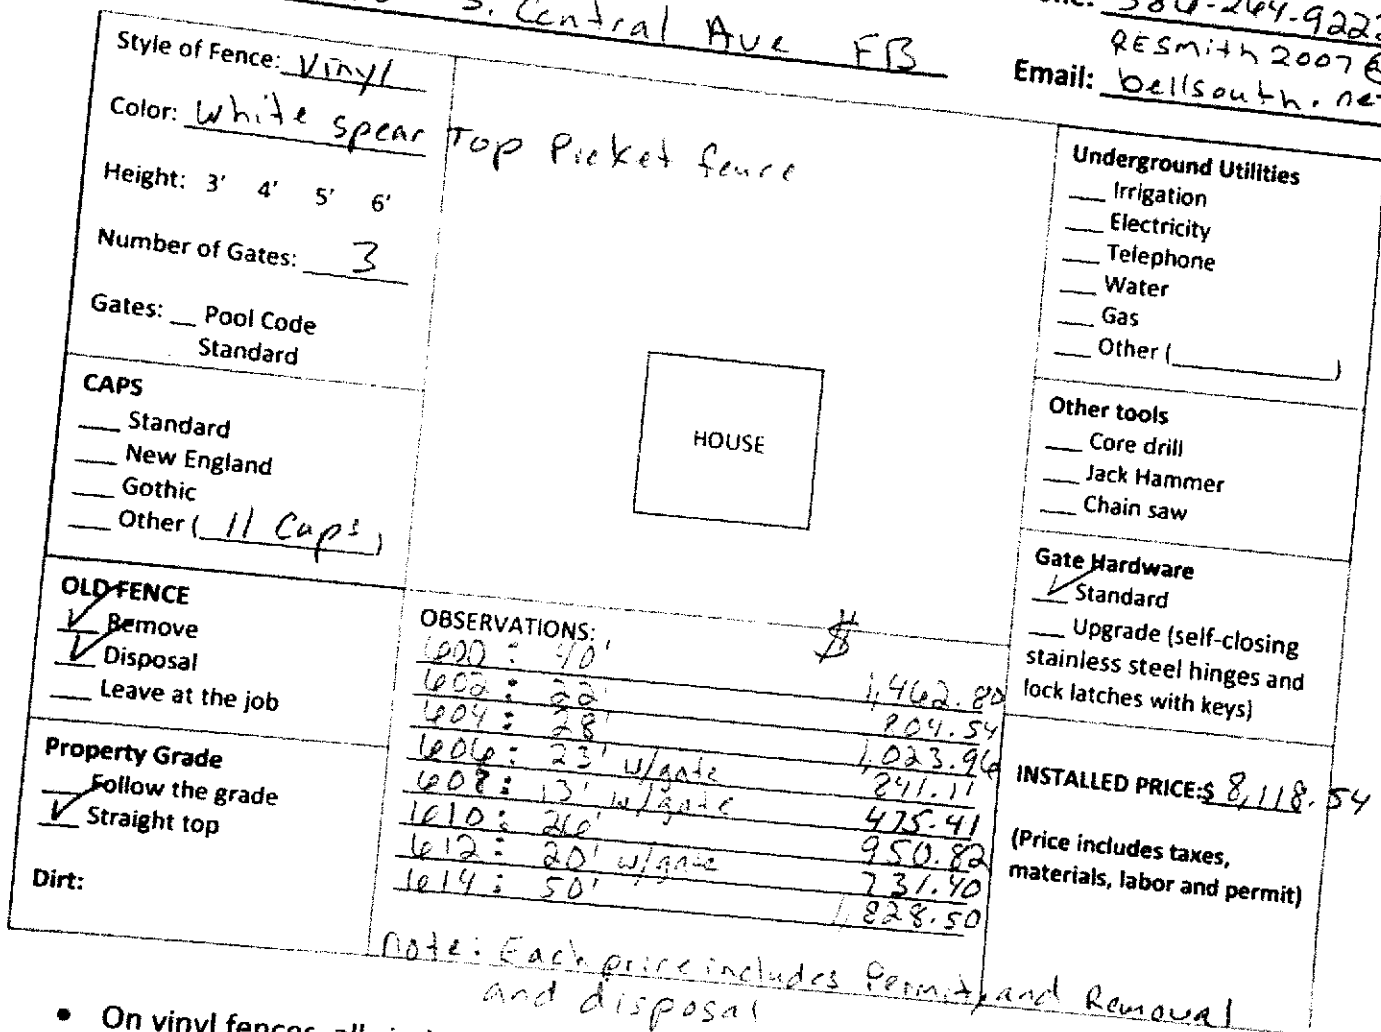 S. Central Ave FB
386-264-922
RESmith 2007@
Email: bellsouth.net
Style of Fence: Vinyl
Color: White spear Top Picket fence
Height: 3' 4' 5' 6'
Number of Gates: 3
Gates: __ Pool Code
Standard
CAPS
___ Standard
___ New England
___ Gothic
___ Other (11 Caps)
OLD FENCE
✓ Remove
✓ Disposal
___ Leave at the job
Property Grade
___ Follow the grade
✓ Straight top
Dirt:
HOUSE
OBSERVATIONS: $
600: 40' 1,462.80
602: 22' 804.54
604: 28' 1,023.96
606: 23' w/gate 841.11
608: 13' w/gate 475.41
610: 26' 950.82
612: 20' w/gate 731.40
614: 50' 1,828.50
note: Each price includes Permit, and Removal
and disposal
Underground Utilities
___ Irrigation
___ Electricity
___ Telephone
___ Water
___ Gas
___ Other (____________)
Other tools
___ Core drill
___ Jack Hammer
___ Chain saw
Gate Hardware
✓ Standard
___ Upgrade (self-closing
stainless steel hinges and
lock latches with keys)
INSTALLED PRICE:$ 8,118.54
(Price includes taxes,
materials, labor and permit)
• On vinyl fences